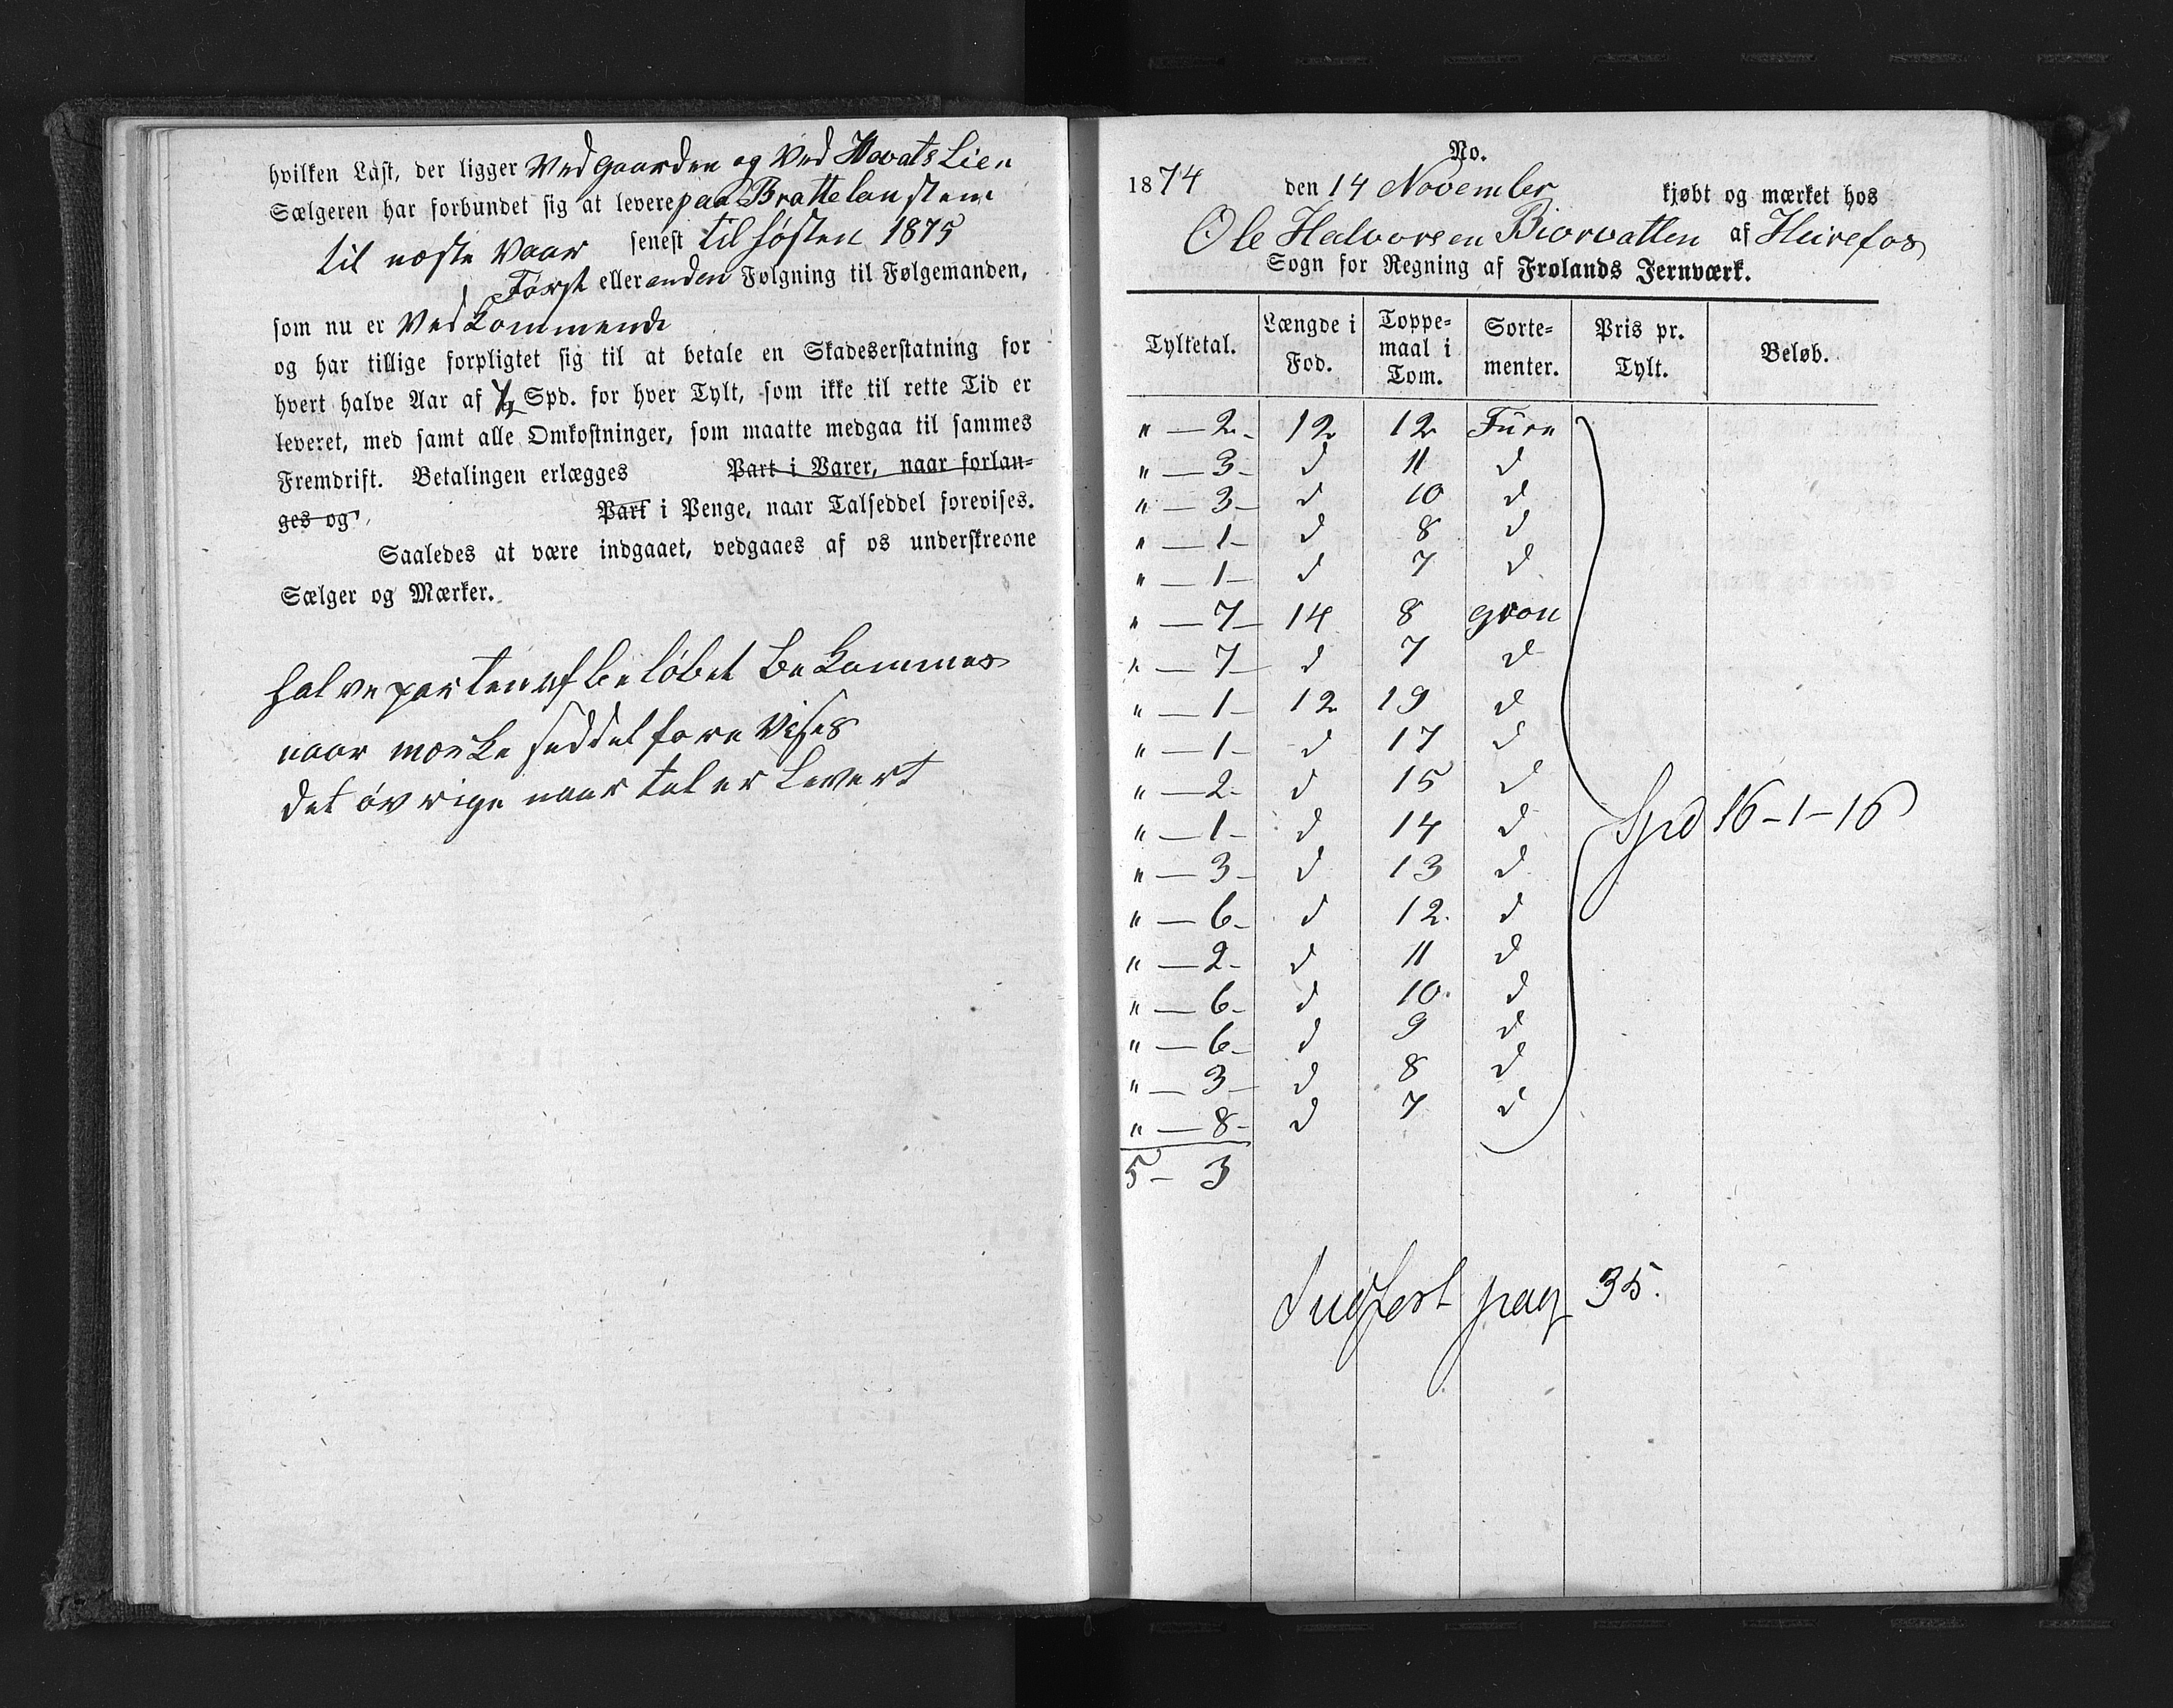 hvilken Last, der ligger Ved Gaarden og Ved Hovats Lien
Sælgeren har forbundet sig at levere paa Brattelandstem
til næste Vaar senest til høsten 1875
Først eller anden Følgning til Følgemanden,
som nu er Vedkommende
og har tillige forpligtet sig til at betale en Skadeserstatning for
hvert halve Aar af ½ Spd. for hver Tylt, som ikke til rette Tid er
leveret, med samt alle Omkostninger, som maatte medgaa til sammes
Fremdrift. Betalingen erlægges Part i Varer, naar forlan-
ges og Part i Penge, naar Talseddel forevises.
Saaledes at være indgaaet, vedgaaes af os underskrevne
Sælger og Mærker.
halve parten af beløbet bekommes
naar mærke seddel fore Vises
det øvrige naar tal er Levert
No.
1874 den 14 November kjøbt og mærket hos
Ole Halvorsen Biorvatten af Heirefos
Sogn for Regning af Frolands Jernværk.
Tyltetal. Længde i Fod. Toppe-maal i Tom. Sorte-menter. Pris pr. Tylt. Beløb.
" — 2 - 12 12 Furu
" — 3 - d 11 d
" — 3 - d 10 d
" — 1 - d 8 d
" — 1 - d 7 d
" — 7 - 14 8 gran
" — 7 - d 7 d
" — 1 - 12 19 d
" — 1 - d 17 d
" — 2 - d 15 d
" — 1 - d 14 d
Spd 16-1-16
" — 3 - d 13 d
" — 6 - d 12 d
" — 2 - d 11 d
" — 6 - d 10 d
" — 6 - d 9 d
" — 3 - d 8 d
" — 8 - d 7 d
5 - 3
Indført pag 35.